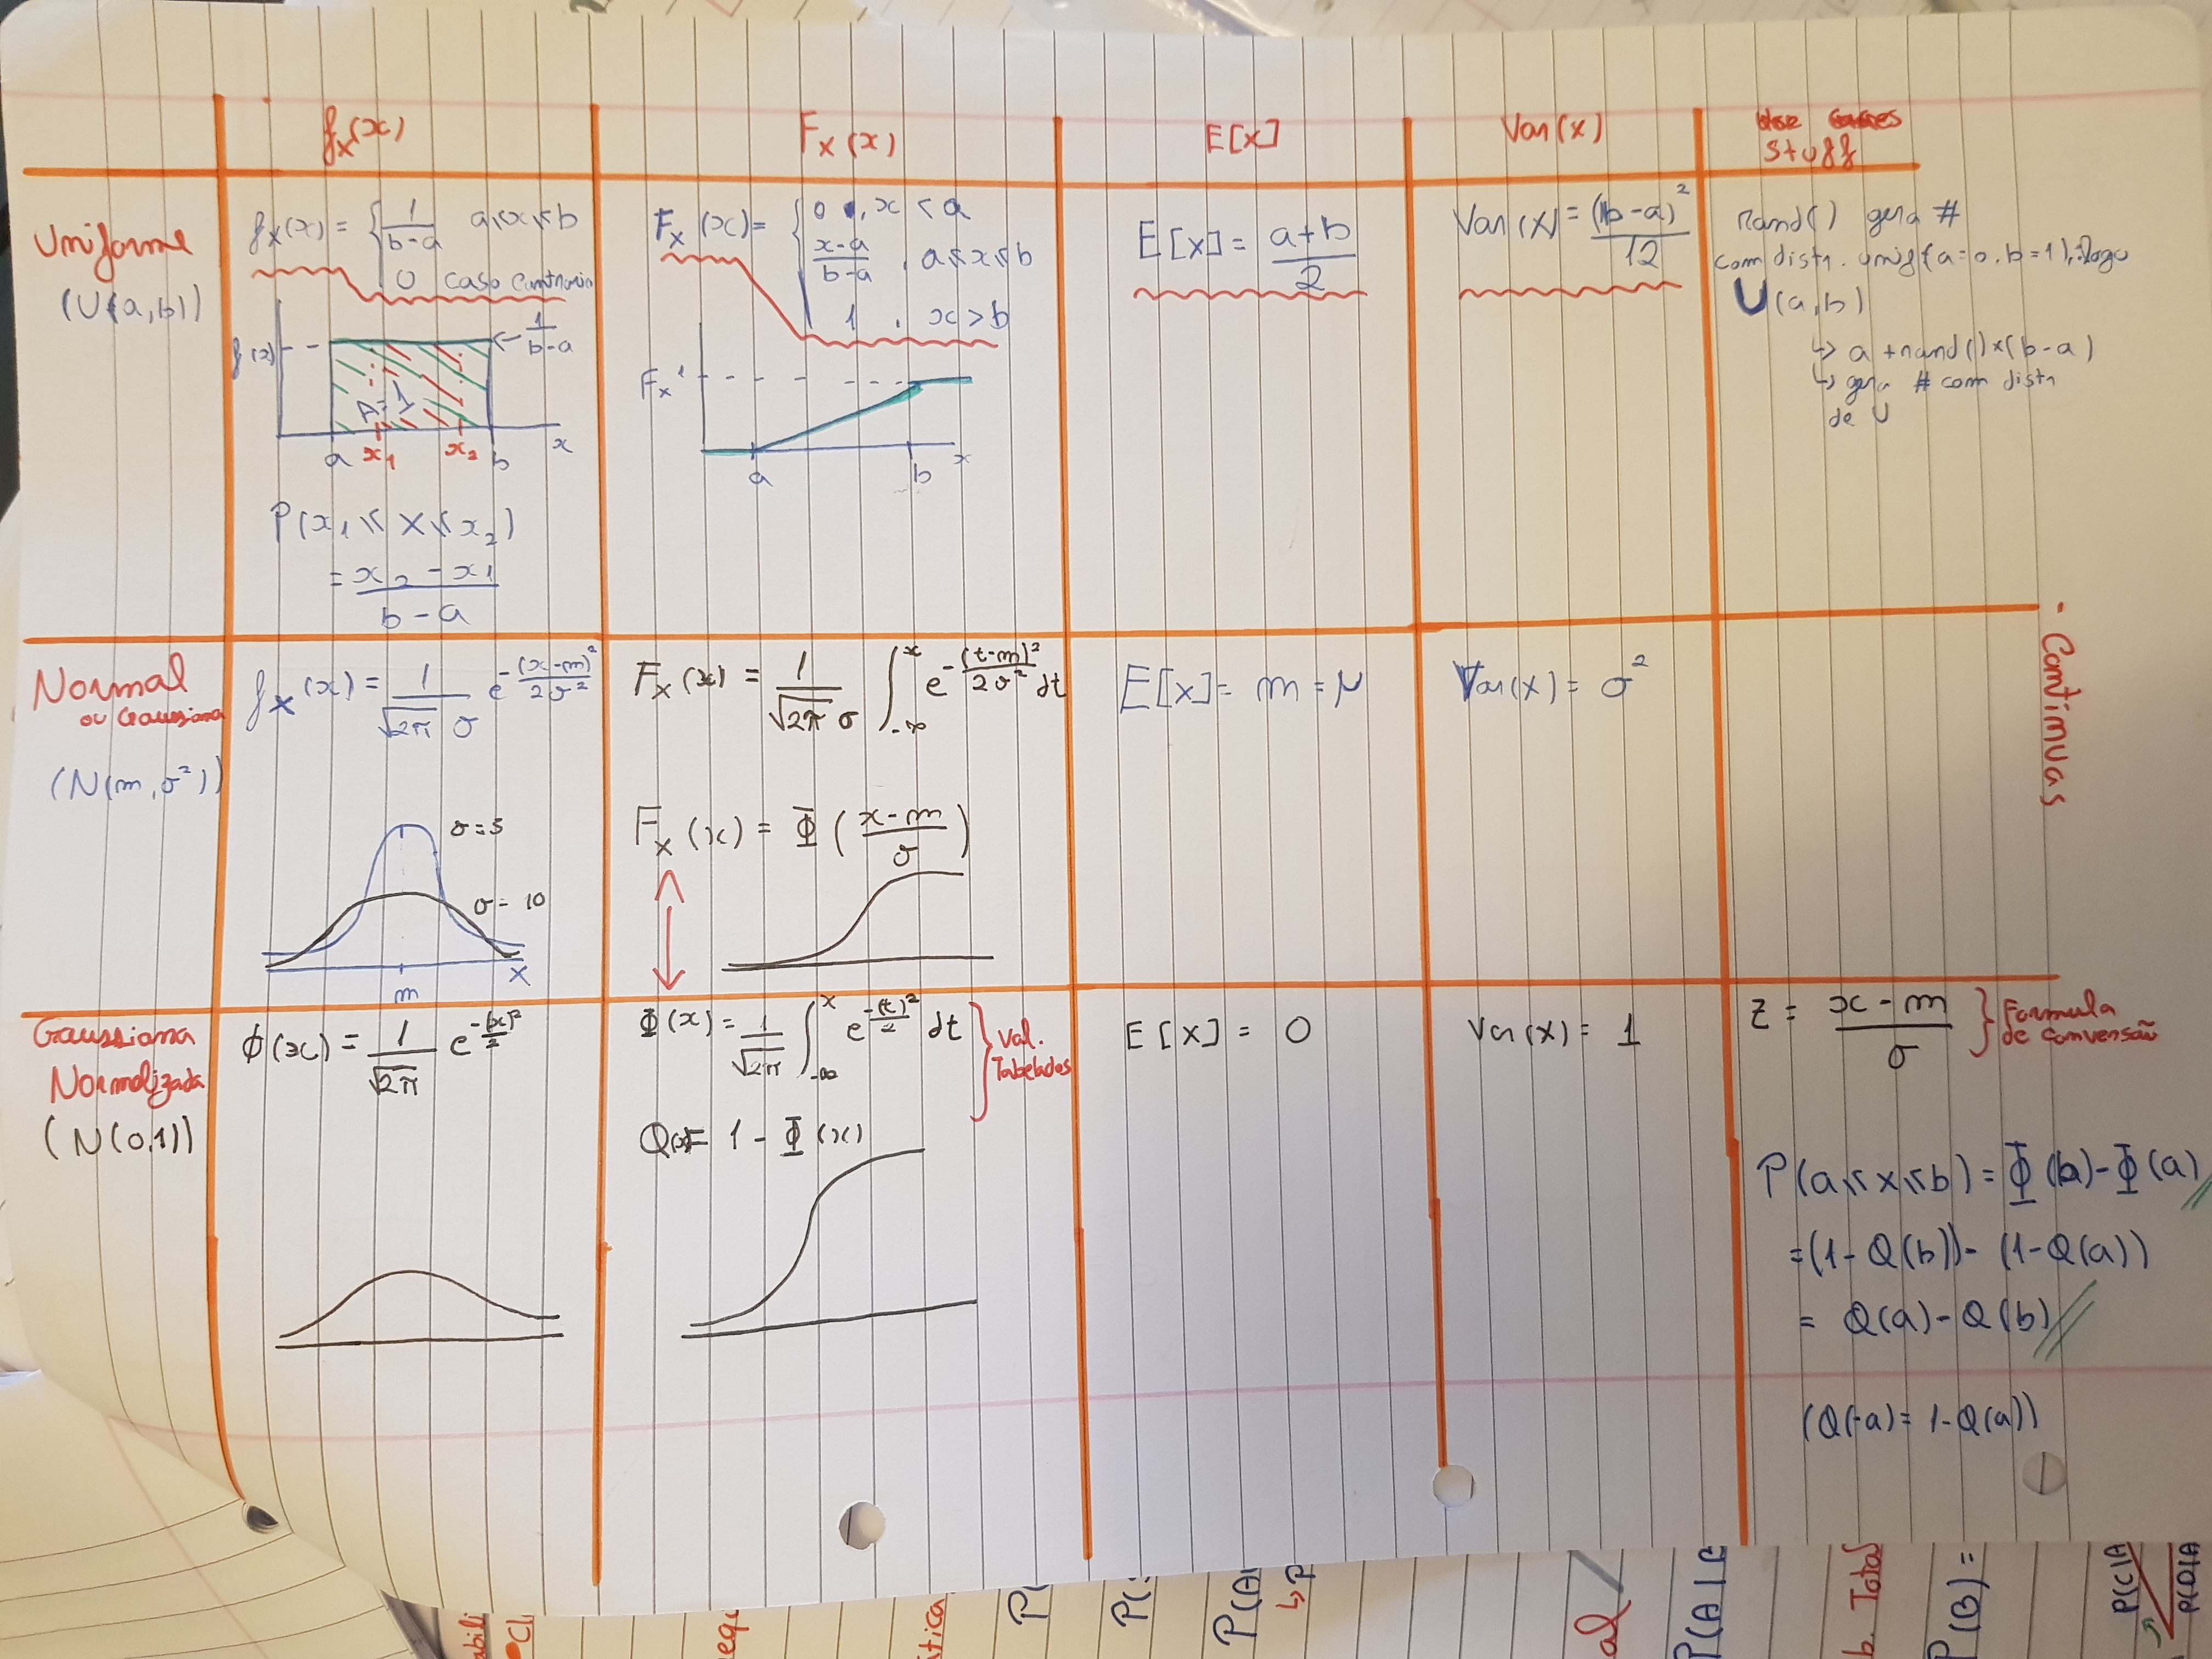 f_X(x)
F_X(x)
E[X]
Var(x)
Stuff
Uniforme
(U(a,b))
f_X(x) = { 1/(b-a) a≤x≤b
0 caso contrario
f(x)
1/(b-a)
A=1
a x₁ x₂ b x
P(x₁ ≤ X ≤ x₂)
= (x₂ - x₁)/(b - a)
F_X(x) = { 0, x < a
(x-a)/(b-a), a≤x≤b
1, x > b
F_X 1
a b x
E[X] = (a+b)/2
Var(X) = (b-a)²/12
Rand() gera #
com distr. unif (a=0, b=1), logo
U(a,b)
↳ a + rand() × (b-a)
↳ gera # com distr
de U
Normal
ou Gaussiana
(N(m,σ²))
f_X(x) = 1/(√2π σ) e^(-(x-m)²/2σ²)
σ=5
σ=10
m x
F_X(x) = 1/(√2π σ) ∫_{-∞}^{x} e^(-(t-m)²/2σ²) dt
F_X(x) = Φ((x-m)/σ)
E[X] = m = μ
Var(X) = σ²
Gaussiana
Normalizada
(N(0,1))
ϕ(x) = 1/√2π e^(-(x)²/2)
Φ(x) = 1/√2π ∫_{-∞}^{x} e^(-(t)²/2) dt
Val.
Tabelados
Q(x) = 1 - Φ(x)
E[X] = 0
Var(X) = 1
Z = (x - m)/σ
Formula
de conversão
P(a≤x≤b) = Φ(b) - Φ(a)
= (1-Q(b)) - (1-Q(a))
= Q(a) - Q(b)
(Q(-a) = 1-Q(a))
• Continuas
P(A
↳P
al
P(A|B
b. Total
P(B) =
P(C|A
P(D|A